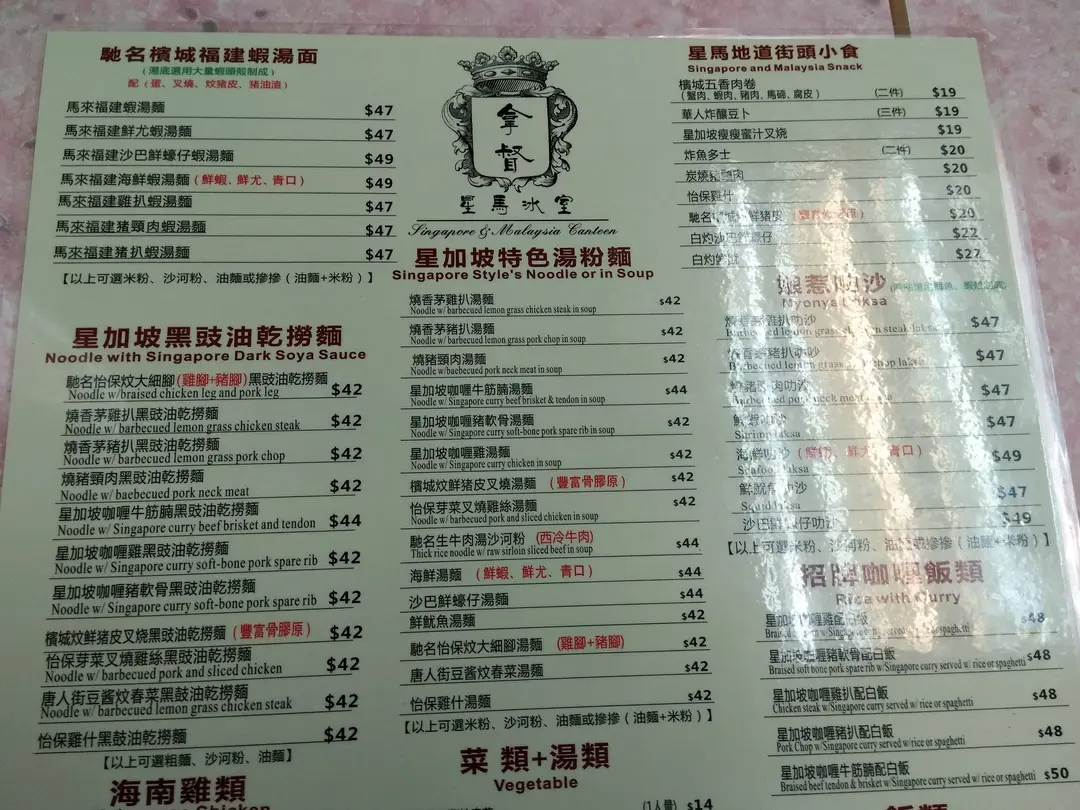 馳名檳城福建蝦湯面
(湯底選用大量蝦頭殼制成)
配(蛋、叉燒、炆豬皮、猪油渣)
馬來福建蝦湯麵 $47
馬來福建鮮尤蝦湯麵 $47
馬來福建沙巴鮮蠔仔蝦湯麵 $49
馬來福建海鮮蝦湯麵(鮮蝦、鮮尤、青口) $49
馬來福建雞扒蝦湯麵 $47
馬來福建猪頸肉蝦湯麵 $47
馬來福建猪扒蝦湯麵 $47
【以上可選米粉、沙河粉、油麵或摻摻(油麵+米粉)】
星加坡黑豉油乾撈麵
Noodle with Singapore Dark Soya Sauce
馳名怡保炆大細腳(雞腳+豬腳)黑豉油乾撈麵
Noodle w/braised chicken leg and pork leg $42
燒香茅雞扒黑豉油乾撈麵
Noodle w/ barbecued lemon grass chicken steak $42
燒香茅豬扒黑豉油乾撈麵
Noodle w/ barbecued lemon grass pork chop $42
燒豬頸肉黑豉油乾撈麵
Noodle w/ baebecued pork neck meat $42
星加坡咖喱牛筋腩黑豉油乾撈麵
Noodle w/ Singapore curry beef brisket and tendon $44
星加坡咖喱雞黑豉油乾撈麵
Noodle w/ Singapore curry soft-bone pork spare rib $42
星加坡咖喱豬軟骨黑豉油乾撈麵
Noodle w/ Singapore curry soft-bone pork spare rib $42
檳城炆鮮猪皮叉燒黑豉油乾撈麵(豐富骨膠原) $42
怡保芽菜叉燒雞絲黑豉油乾撈麵
Noodle w/ barbecued pork and sliced chicken $42
唐人街豆酱炆春菜黑鼓油乾撈麵
Noodle w/ barbecued lemon grass chicken steak $42
怡保雞什黑鼓油乾撈麵 $42
【以上可選粗麵、沙河粉、油麵】
海南雞類
拿督
星馬冰室
Singapore & Malaysia Canteen
星加坡特色湯粉麵
Singapore Style's Noodle or in Soup
燒香茅雞扒湯麵 $42
Noodle w/ barbecued lemon grass chicken steak in soup
燒香茅豬扒湯麵 $42
Noodle w/barbecued lemon grass pork chop in soup
燒豬頸肉湯麵 $42
Noodle w/baebecued pork neck meat in soup
星加坡咖喱牛筋腩湯麵 $44
Noodle w/ Singapore curry beef brisket & tendon in soup
星加坡咖喱豬軟骨湯麵 $42
Noodle w/ Singapore curry soft-bone pork spare rib in soup
星加坡咖喱雞湯麵 $42
Noodle w/ Singapore curry chicken in soup
檳城炆鮮猪皮叉燒湯麵 (豐富骨膠原) $42
怡保芽菜叉燒雞絲湯麵 $42
Noodle w/barbecued pork and sliced chicken in soup
馳名生牛肉湯沙河粉 (西冷牛肉)
Thick rice noodle w/ raw sirloin sliced beef in soup $44
海鮮湯麵 (鮮蝦、鮮尤、青口) $44
沙巴鮮蠔仔湯麵 $44
鮮魷魚湯麵 $42
馳名怡保炆大細腳湯麵 (雞腳+豬腳) $42
唐人街豆酱炆春菜湯麵 $42
怡保雞什湯麵 $42
【以上可選米粉、沙河粉、油麵或摻摻(油麵+米粉)】
菜類+湯類
Vegetable
(1人量) $14
星馬地道街頭小食
Singapore and Malaysia Snack
檳城五香肉卷
(蟹肉、蝦肉、豬肉、馬蹄、腐皮) (二件) $19
華人炸釀豆卜 (三件) $19
星加坡瘦瘦蜜汁叉烧 $19
炸魚多士 (二件) $20
炭燒豬頸肉 $20
怡保雞什 $20
馳名檳城 鮮猪皮 $20
白灼沙巴 蠔仔 $22
白灼 $22
娘惹叻沙
Nyonya Laksa
燒香茅雞扒叻沙 $47
Barbecued lemon grass chicken steak laksa
燒香茅豬扒叻沙 $47
Barbecued lemon grass chop laksa
燒豬頸肉叻沙 $47
Barbecued pork neck meat laksa
鮮蝦叻沙 $47
Shrimp laksa
海鮮叻沙 (鮮蝦、鮮尤、青口) $49
Seafood laksa
鮮魷魚叻沙 $47
Squid laksa
沙巴鮮蠔仔叻沙 $49
【以上可選米粉、沙河粉、油麵或摻摻(油麵+米粉)】
招牌咖喱飯類
Rice with Curry
星加坡咖喱雞配白飯 $48
星加坡咖喱豬軟骨配白飯 $48
Braised soft bone pork spare rib w/Singapore curry served w/ rice or spaghetti
星加坡咖喱雞扒配白飯 $48
Chicken steak w/Singapore curry served w/ rice or spaghetti
星加坡咖喱豬扒配白飯 $48
Pork Chop w/Singapore curry served w/rice or spaghetti
星加坡咖喱牛筋腩配白飯 $50
Braised beef tendon & brisket w/Singapore curry served w/ rice or spaghetti